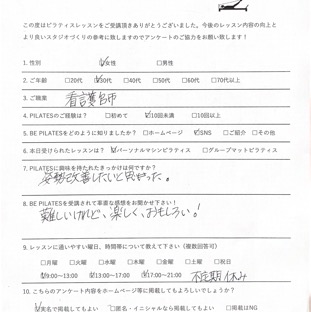 この度はピラティスレッスンをご受講頂きありがとうございました。今後のレッスン内容の向上と
より良いスタジオづくりの参考に致しますのでアンケートのご協力をお願い致します！
1. 性別 ☑女性 □男性
2. ご年齢 □20代 ☑30代 □40代 □50代 □60代 □70代以上
3. ご職業 看護師
4. PILATESのご経験は？ □初めて ☑10回未満 □10回以上
5. BE PILATESをどのように知りましたか？ □ホームページ ☑SNS □ご紹介 □その他
6. 本日受けられたレッスンは？ ☑パーソナルマシンピラティス □グループマットピラティス
7. PILATESに興味を持たれたきっかけは何ですか？
姿勢改善したいと思った。
8. BE PILATESを受講されて率直な感想をお聞かせ下さい！
難しいけれど、楽しく、おもしろい！
9. レッスンに通いやすい曜日、時間帯について教えて下さい（複数回答可）
□月曜 □火曜 □水曜 □木曜 □金曜 □土曜 □祝日
☑9:00〜13:00 ☑13:00〜17:00 ☑17:00〜21:00 不定期休み
10. こちらのアンケート内容をホームページ等に掲載してもよろしいでしょうか？
☑実名で掲載してもよい □匿名・イニシャルなら掲載してもよい □掲載はNG